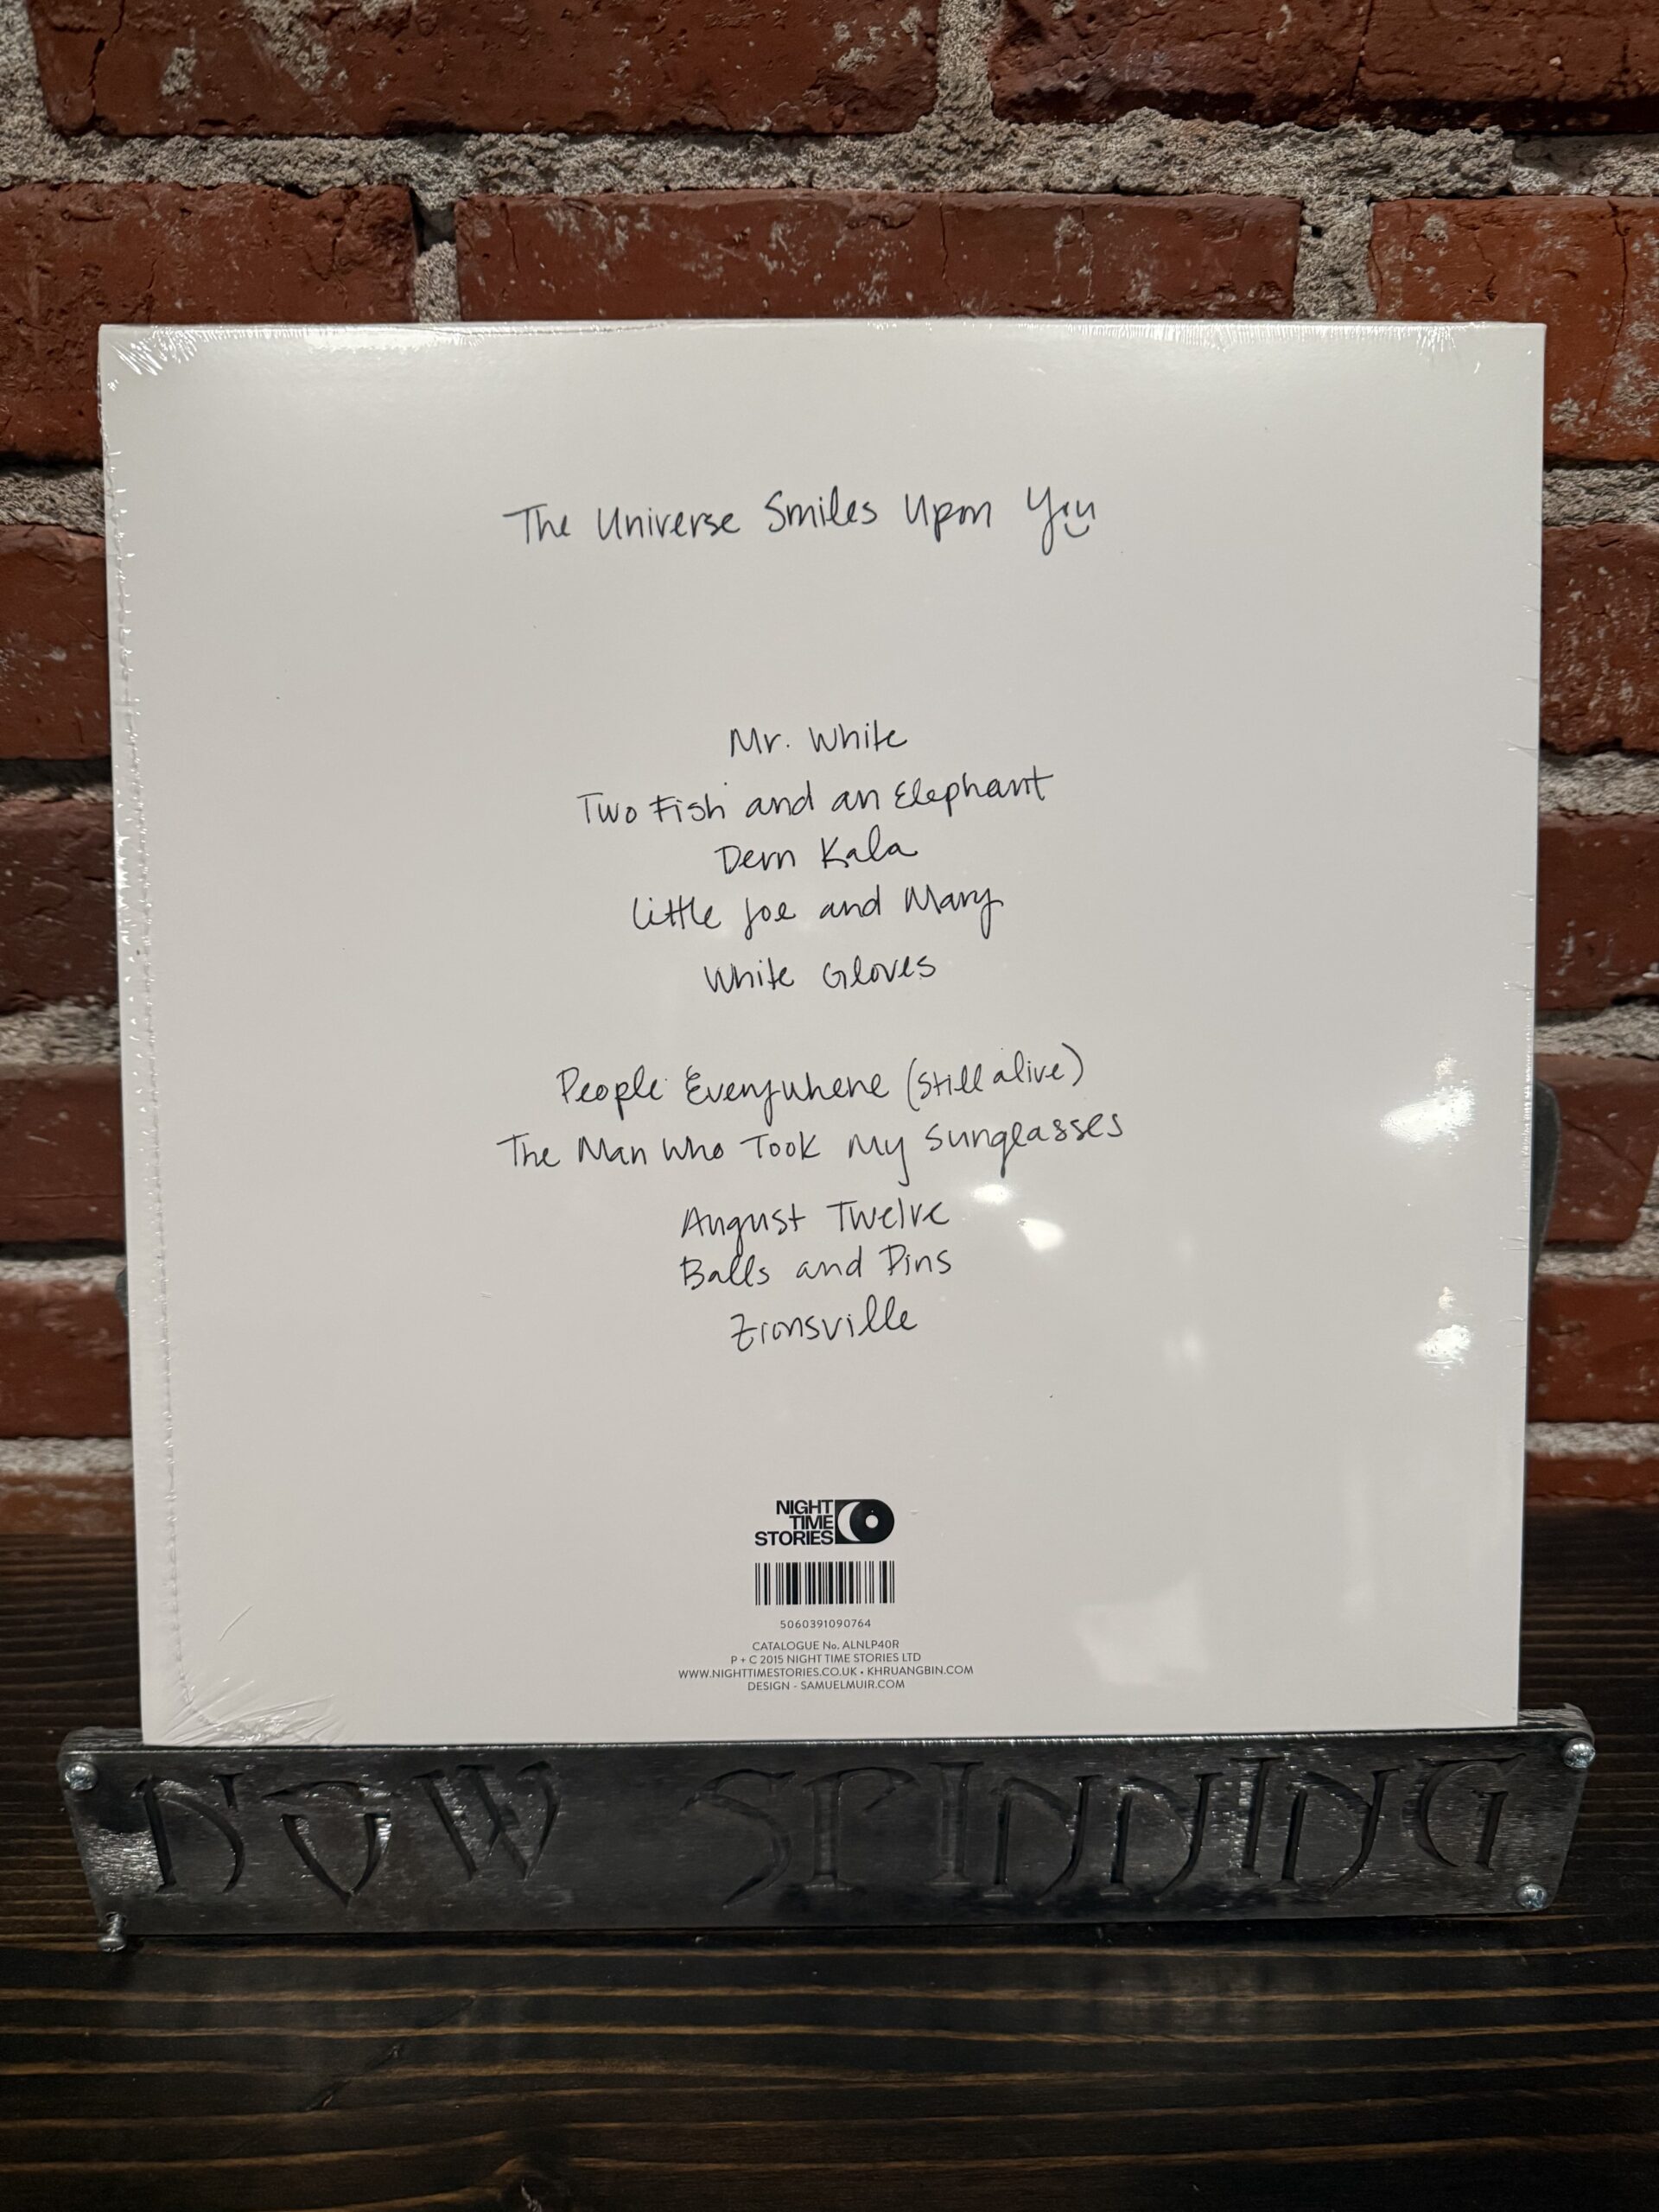 The Universe Smiles Upon You
Mr. White
Two Fish and an Elephant
Dern Kala
Little Joe and Mary
White Gloves
People Everywhere (Still alive)
The Man Who Took My Sunglasses
August Twelve
Balls and Pins
Zionsville
NIGHT
TIME
STORIES
5060391090764
CATALOGUE No. ALNLP40R
P + C 2015 NIGHT TIME STORIES LTD
WWW.NIGHTTIMESTORIES.CO.UK • KHRUANGBIN.COM
DESIGN - SAMUELMUIR.COM
NOW SPINNING